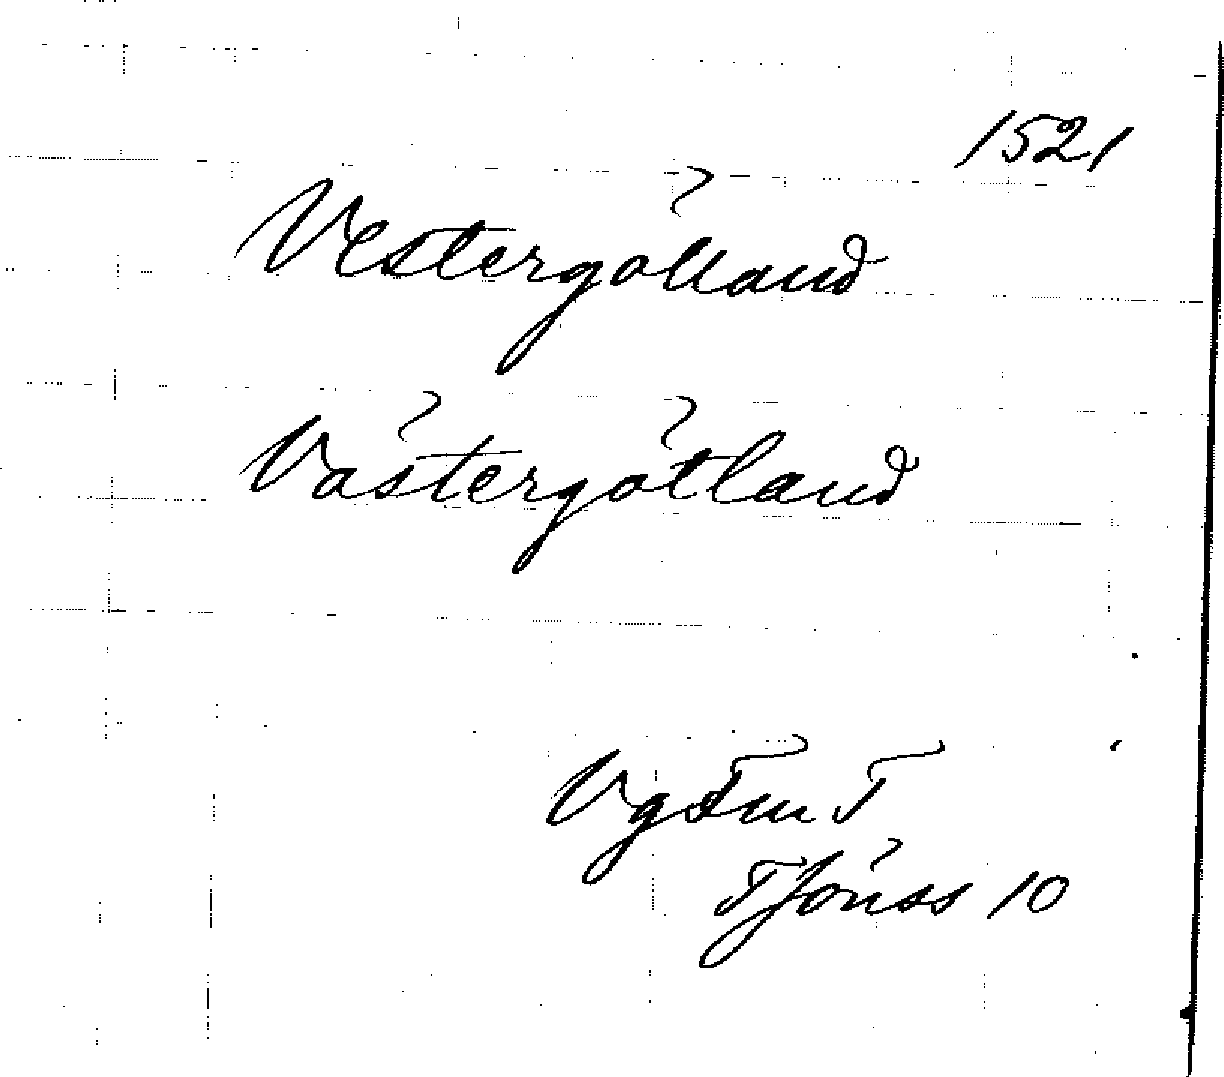 1521
Vestergötland
Västergötland
VgFmT
Tjörss 10